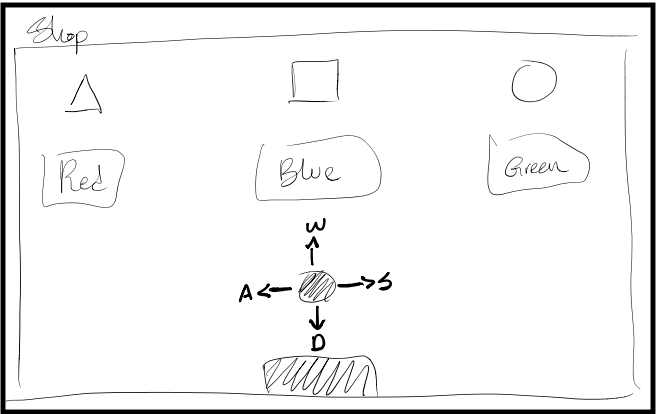 Shop
Red Blue Green
W
A S
D